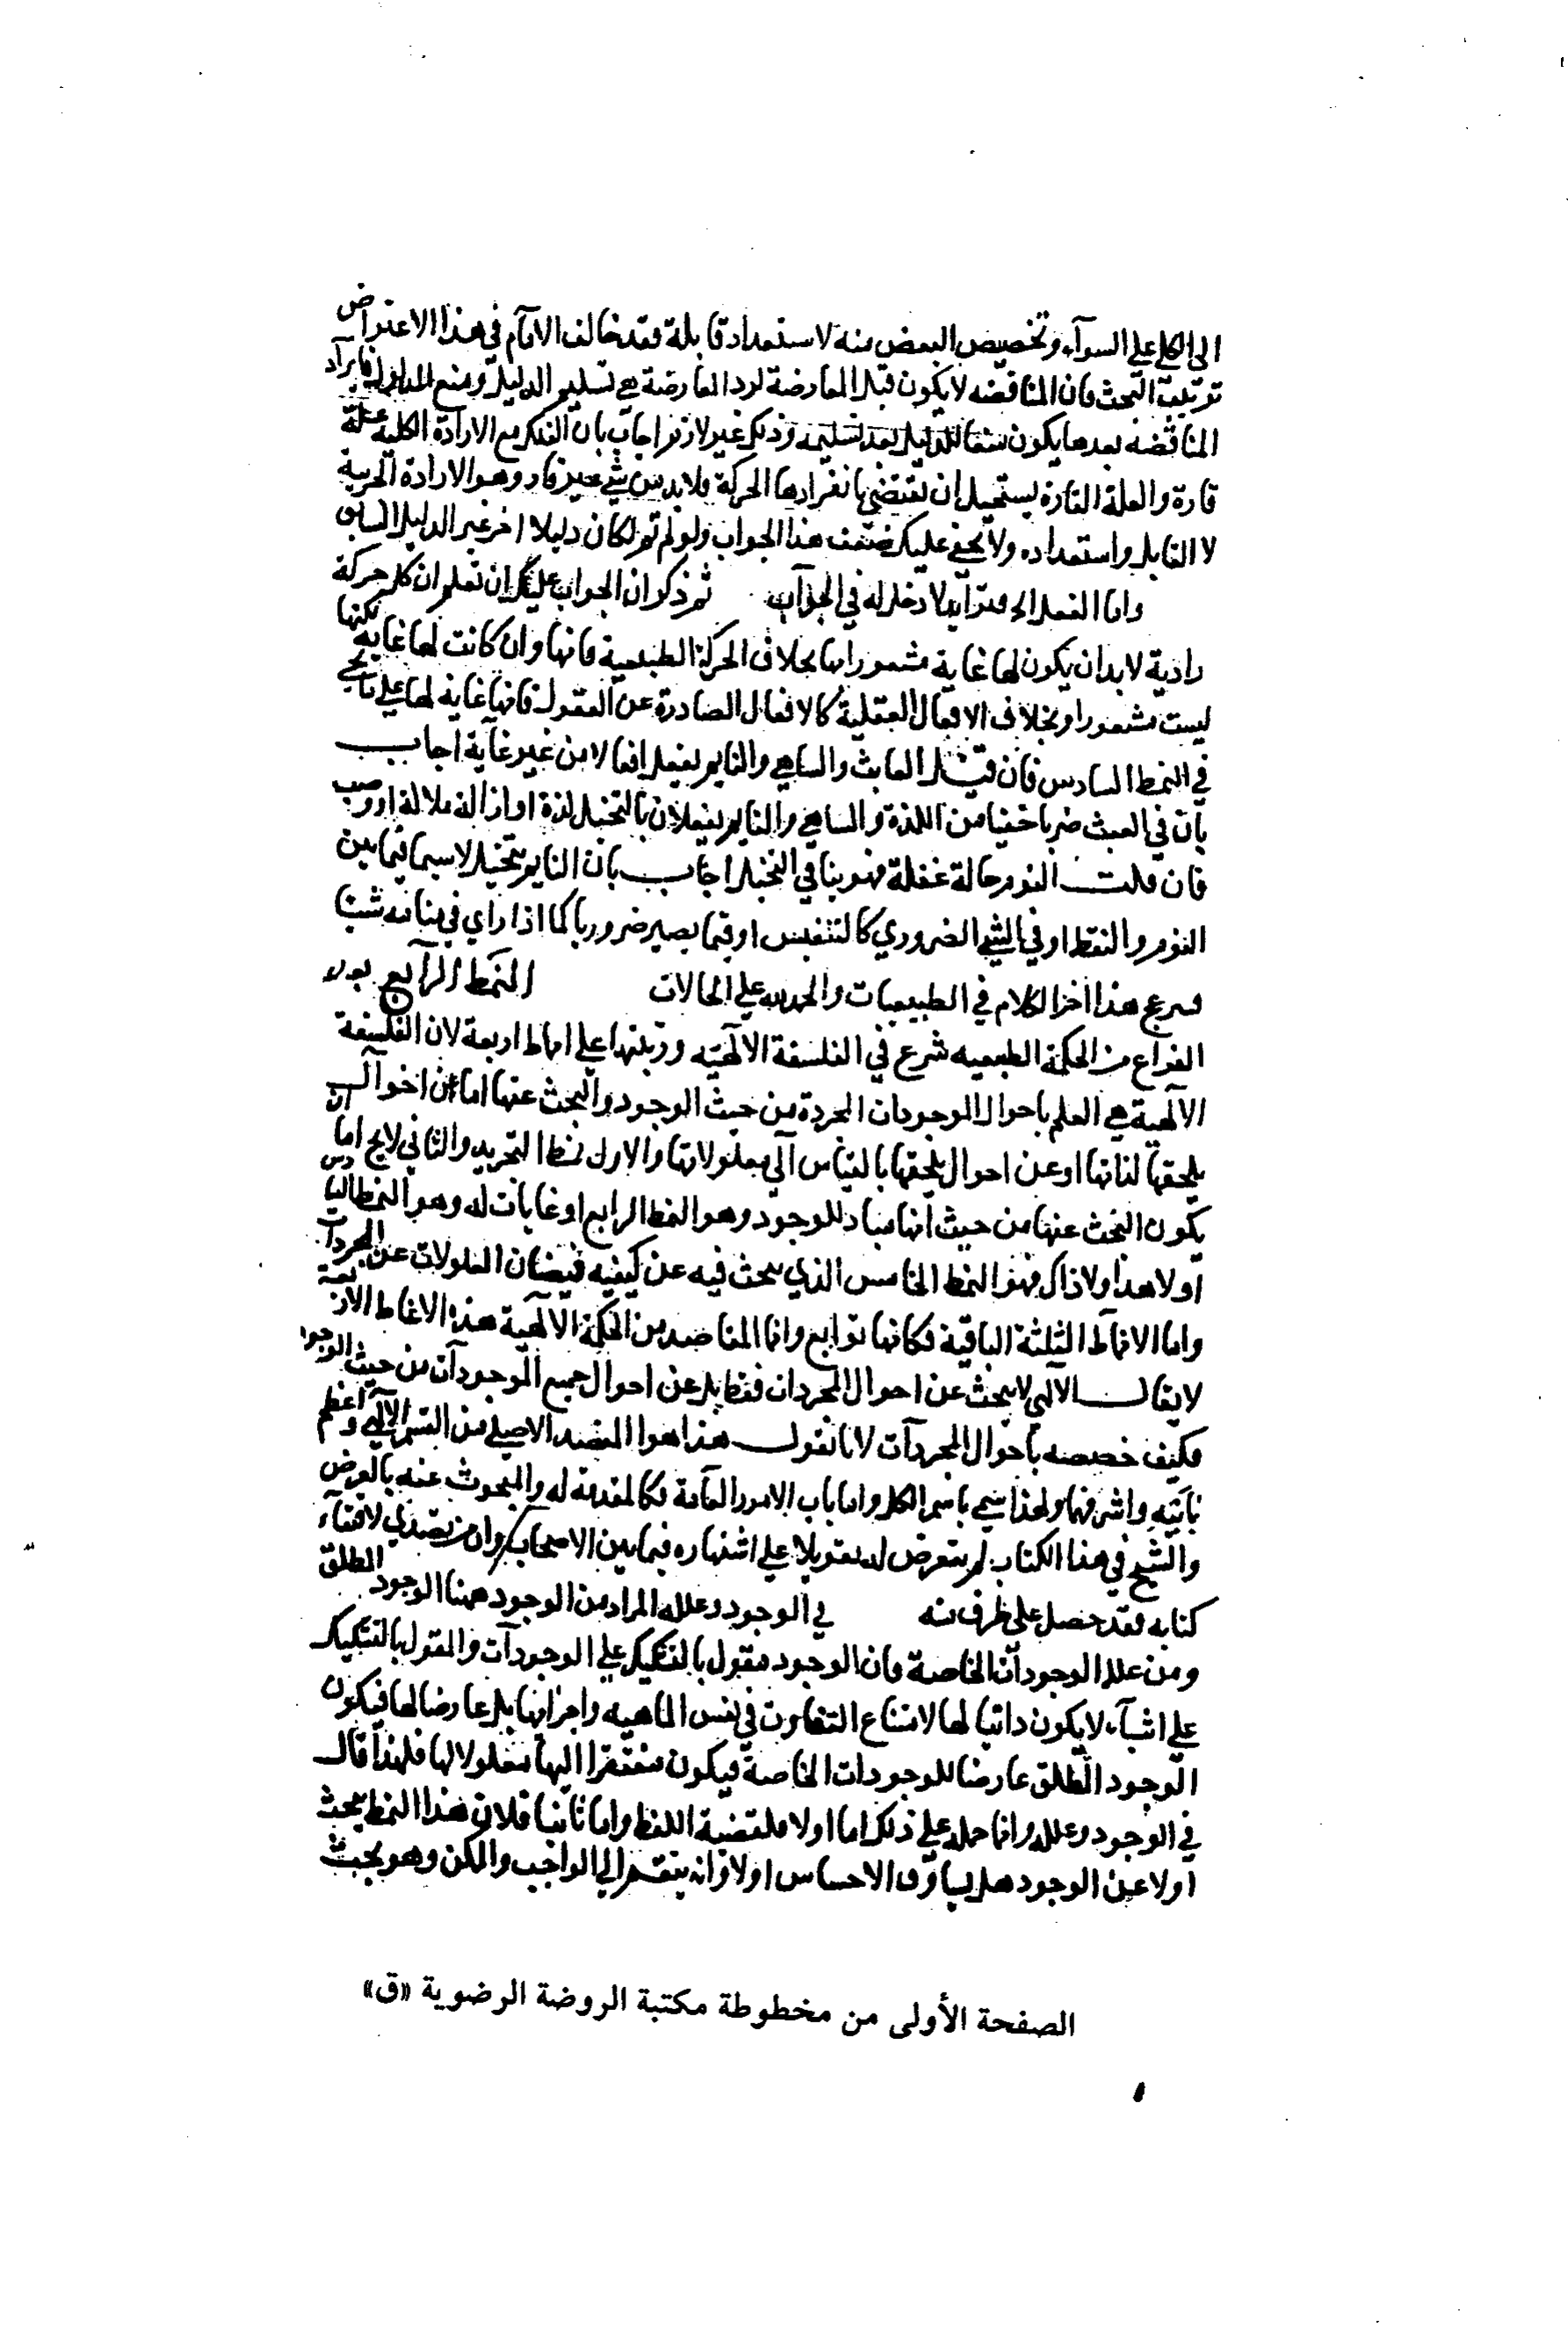 الى الكل على السوآء وتخصيص البعض منه لاستعداد قابلة فقد خالف الامام في هذا الاعتراض
ترتيب البحث فان المناقضه لا يكون قبل المعارضة لرد المعارضة هي تسليم الدليل ومنع المدلول فايراد
المناقضه بعدها يكون منعا للدليل بعد تسليمه وذلك غير لازم اجاب بان الفلك مع الارادة الكلية علة
قارة والعلة القارة يستحيل ان يقتضي بانفرادها الحركة فلا بد من شئ غير قار وهو الارادة الجزئية
لا القابل واستعداده ولا يخفى عليك ضعف هذا الجواب ولو لم تم لكان دليلا اخر غير الدليل السابق
واما الفعل الى لا دخل له في الجواب ثم ذكر ان الجواب عليك ان تعلم ان كل حركة
رادية لا بد ان يكون لها غاية مشعورا بها بخلاف الحركة الطبيعية فانها وان كانت لها غاية لكنها
ليست مشعورا وبخلاف الافعال العقلية كالافعال الصادرة عن العقول فانها غاية لها على ما يجئ
في النمط السادس فان قيل العابث والساهي والنايم يفعل افعالا من غير غاية اجاب
بان في العبث ضربا خفيا من اللذة والساهي والنايم يفعلان بالتخيل لذة او ازالة ملالة او وصب
فان قلت النوم حالة غفلة فهو ينافي التخيل اجاب بان النايم يتخيل لا سيما فيما بين
النوم والنقط او في الشئ الضروري كالتنفس او فيما يصير ضروريا كما اذا راي في منامه شيئا
هذا اخر الكلام في الطبيعيات والحمد لله على الحالات النمط الرابع
الفراغ من الحكمة الطبيعيه شرع في الفلسفة الالهيه ورتبتها على انماط اربعة لان الفلسفة
الالهية هي العلم باحوال الموجودات المجردة من حيث الوجود والبحث عنها اما عن احوال
يلحقها لذاتها او عن احوال يلحقها بالقياس الى معلولاتها والاول نمط التجريد والثاني لا يخ اما ان
يكون البحث عنها من حيث انها مباد للوجود وهو النمط الرابع او غايات له وهو النمط السادس
او لا هذا ولا ذاك فهو النمط الخامس الذي يبحث فيه عن كيفيه فيضان المعلولات عن المجردات
واما الانماط الثلثة الباقية فكانها توابع وانما المقاصد من الحكمة الالهية هذه الانماط الاربعة
لا يقال الالهي لا يبحث عن احوال المجردات فقط بل عن احوال جميع الموجودات من حيث الوجود
فكيف خصصه باحوال المجردآت لانا نقول هذا هو المقصد الاصلي من القسم الالهي واعظم
واشرفها ولهذا سمي باسم الكل واما باب الامور العامة فكالمقدمة له والمبحوث عنه بالعرض
والشيخ في هذا الكتاب لم يتعرض له تعويلا على اشتهاره فيما بين الاصحاب وان من تصدى لاقتفاء
كتابه فقد حصل على طرف منه في الوجود وعلله المراد من الوجود ههنا الوجود المطلق
ومن علله الوجودات الخاصة فان الوجود مقول بالتشكيك على الوجودات والمقول بالتشكيك
على اشيآء لا يكون ذاتيا لها لامتناع التفاوت في نفس الماهيه واجزائها بل عارضا لها فيكون
الوجود المطلق عارضا للوجودات الخاصة فيكون مفتقرا اليها معلولا لها فلهذا قال
في الوجود وعلله وانما حمله على ذلك اما اولا فلقضية اللفظ واما ثانيا فلان هذا النمط يبحث
اولا عن الوجود هل يساوق الاحساس اولا وانه ينقسم الى الواجب والممكن وهو يبحث
الصفحة الأولى من مخطوطة مكتبة الروضة الرضوية «ق»